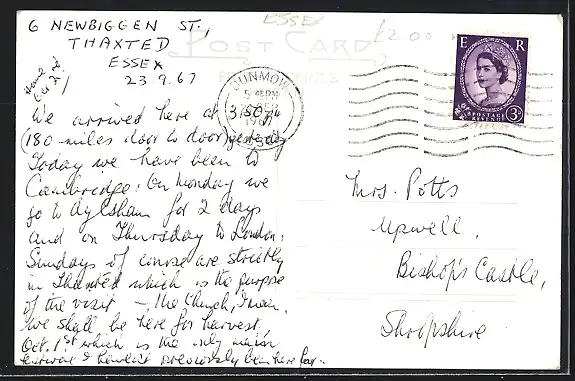 6 NEWBIGGEN ST.,
THAXTED
ESSEX
23.9.67
ESSEX
£2.00
POST CARD
DUNMOW
5 45PM
1967
ESSEX
E R
POSTAGE
REVENUE
3D
We arrived here at 3.50 pm
(180 miles door to door) yesterday
Today we have been to
Cambridge: On Monday we
go to Aylsham for 2 days
and on Thursday to London.
Sundays of course are strictly
in Thaxted which is the purpose
of the visit - the Church, I mean.
We shall be here for harvest,
Oct. 1st which is the only major
festival I haven't previously been here for.
Mrs. Potts
Upwell.
Bishop's Castle,
Shropshire